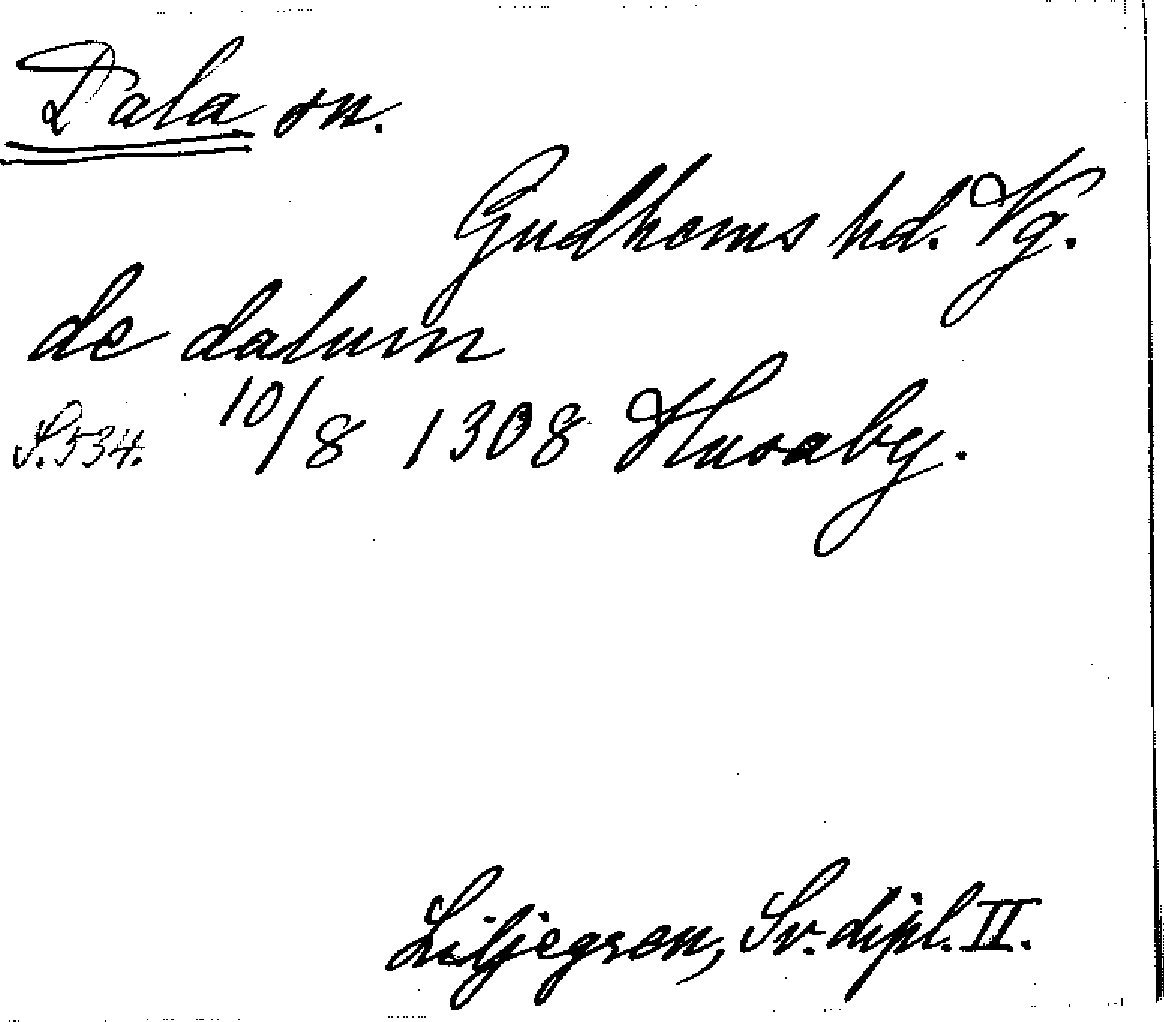 Dala sn.
Gudhems hd. Vg.
de datum
S.534. 10/8 1308 Husaby.
Liljegren, Sv. dipl. II.